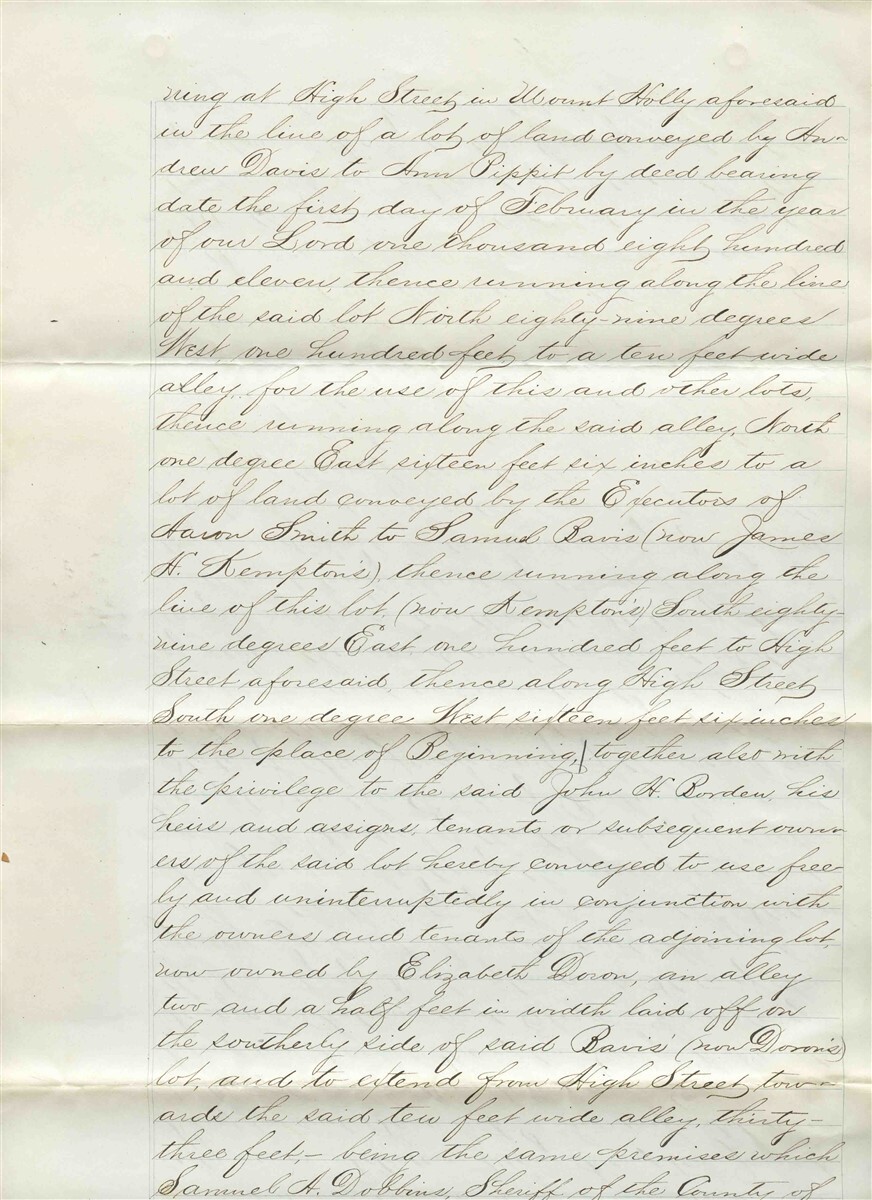 ning at High Street in Mount Holly aforesaid
in the line of a lot of land conveyed by An-
drew Davis to Ann Pippit by deed bearing
date the first day of February in the year
of our Lord one thousand eight hundred
and eleven, thence running along the line
of the said lot North eighty-nine degrees
West one hundred feet to a ten feet wide
alley, for the use of this and other lots,
thence running along the said alley, North
one degree East sixteen feet six inches to a
lot of land conveyed by the Executors of
Aaron Smith to Samuel Bavis (now James
H. Kempton's) thence running along the
line of this lot (now Kempton's) South eighty-
nine degrees East one hundred feet to High
Street aforesaid, thence along High Street
South one degree West sixteen feet six inches
to the place of Beginning, together also with
the privilege to the said John H. Borden, his
heirs and assigns, tenants or subsequent own-
ers of the said lot hereby conveyed to use free-
ly and uninterruptedly in conjunction with
the owners and tenants of the adjoining lot,
now owned by Elizabeth Doron, an alley
two and a half feet in width laid off on
the southerly side of said Bavis' (now Doron's)
lot, and to extend from High Street tow-
ards the said ten feet wide alley, thirty-
three feet,- being the same premises which
Samuel A. Dobbins, Sheriff of the County of